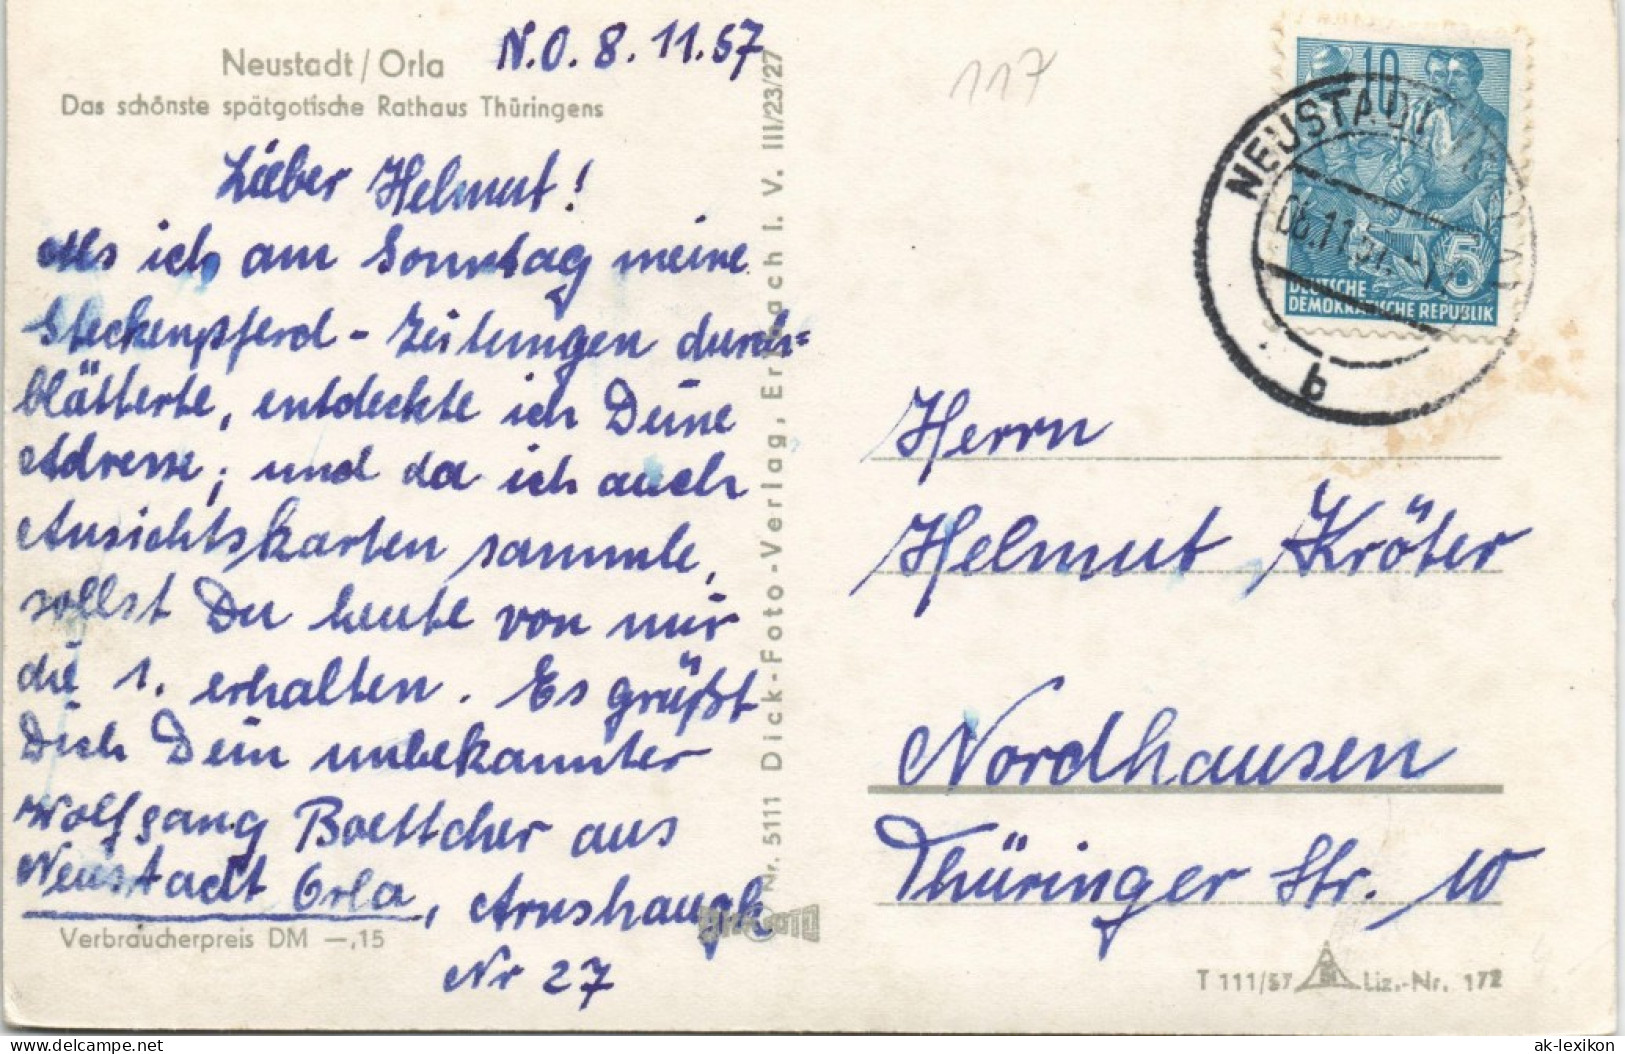 Neustadt / Orla
N.O. 8.11.57
Das schönste spätgotische Rathaus Thüringens
Lieber Helmut!
Als ich am Sonntag meine
Steckenpferd-Zeitungen durch=
blätterte, entdeckte ich Deine
Adresse; und da ich auch
Ansichtskarten sammle,
sollst Du heute von mir
die 1. erhalten. Es grüßt
Dich Dein unbekannter
Wolfgang Boettcher aus
Neustadt Orla, Arnshaugk
Nr 27
Verbraucherpreis DM —,15
Nr. 5111 Dick-Foto-Verlag, Erlbach I. V. III/23/27
117
10
5
DEUTSCHE
DEMOKRATISCHE REPUBLIK
NEUSTADT
b
Herrn
Helmut Kröter
Nordhausen
Thüringer Str. 10
T 111/57 Liz.-Nr. 172
https://www.delcampe.net
ak-lexikon